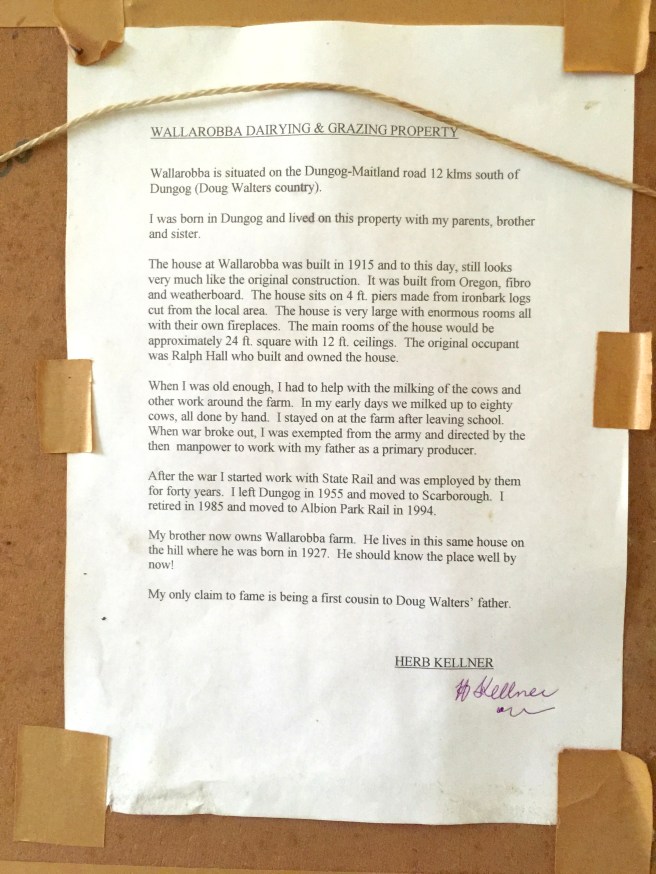 WALLAROBBA DAIRYING & GRAZING PROPERTY
Wallarobba is situated on the Dungog-Maitland road 12 klms south of
Dungog (Doug Walters country).
I was born in Dungog and lived on this property with my parents, brother
and sister.
The house at Wallarobba was built in 1915 and to this day, still looks
very much like the original construction. It was built from Oregon, fibro
and weatherboard. The house sits on 4 ft. piers made from ironbark logs
cut from the local area. The house is very large with enormous rooms all
with their own fireplaces. The main rooms of the house would be
approximately 24 ft. square with 12 ft. ceilings. The original occupant
was Ralph Hall who built and owned the house.
When I was old enough, I had to help with the milking of the cows and
other work around the farm. In my early days we milked up to eighty
cows, all done by hand. I stayed on at the farm after leaving school.
When war broke out, I was exempted from the army and directed by the
then manpower to work with my father as a primary producer.
After the war I started work with State Rail and was employed by them
for forty years. I left Dungog in 1955 and moved to Scarborough. I
retired in 1985 and moved to Albion Park Rail in 1994.
My brother now owns Wallarobba farm. He lives in this same house on
the hill where he was born in 1927. He should know the place well by
now!
My only claim to fame is being a first cousin to Doug Walters' father.
HERB KELLNER
H Kellner